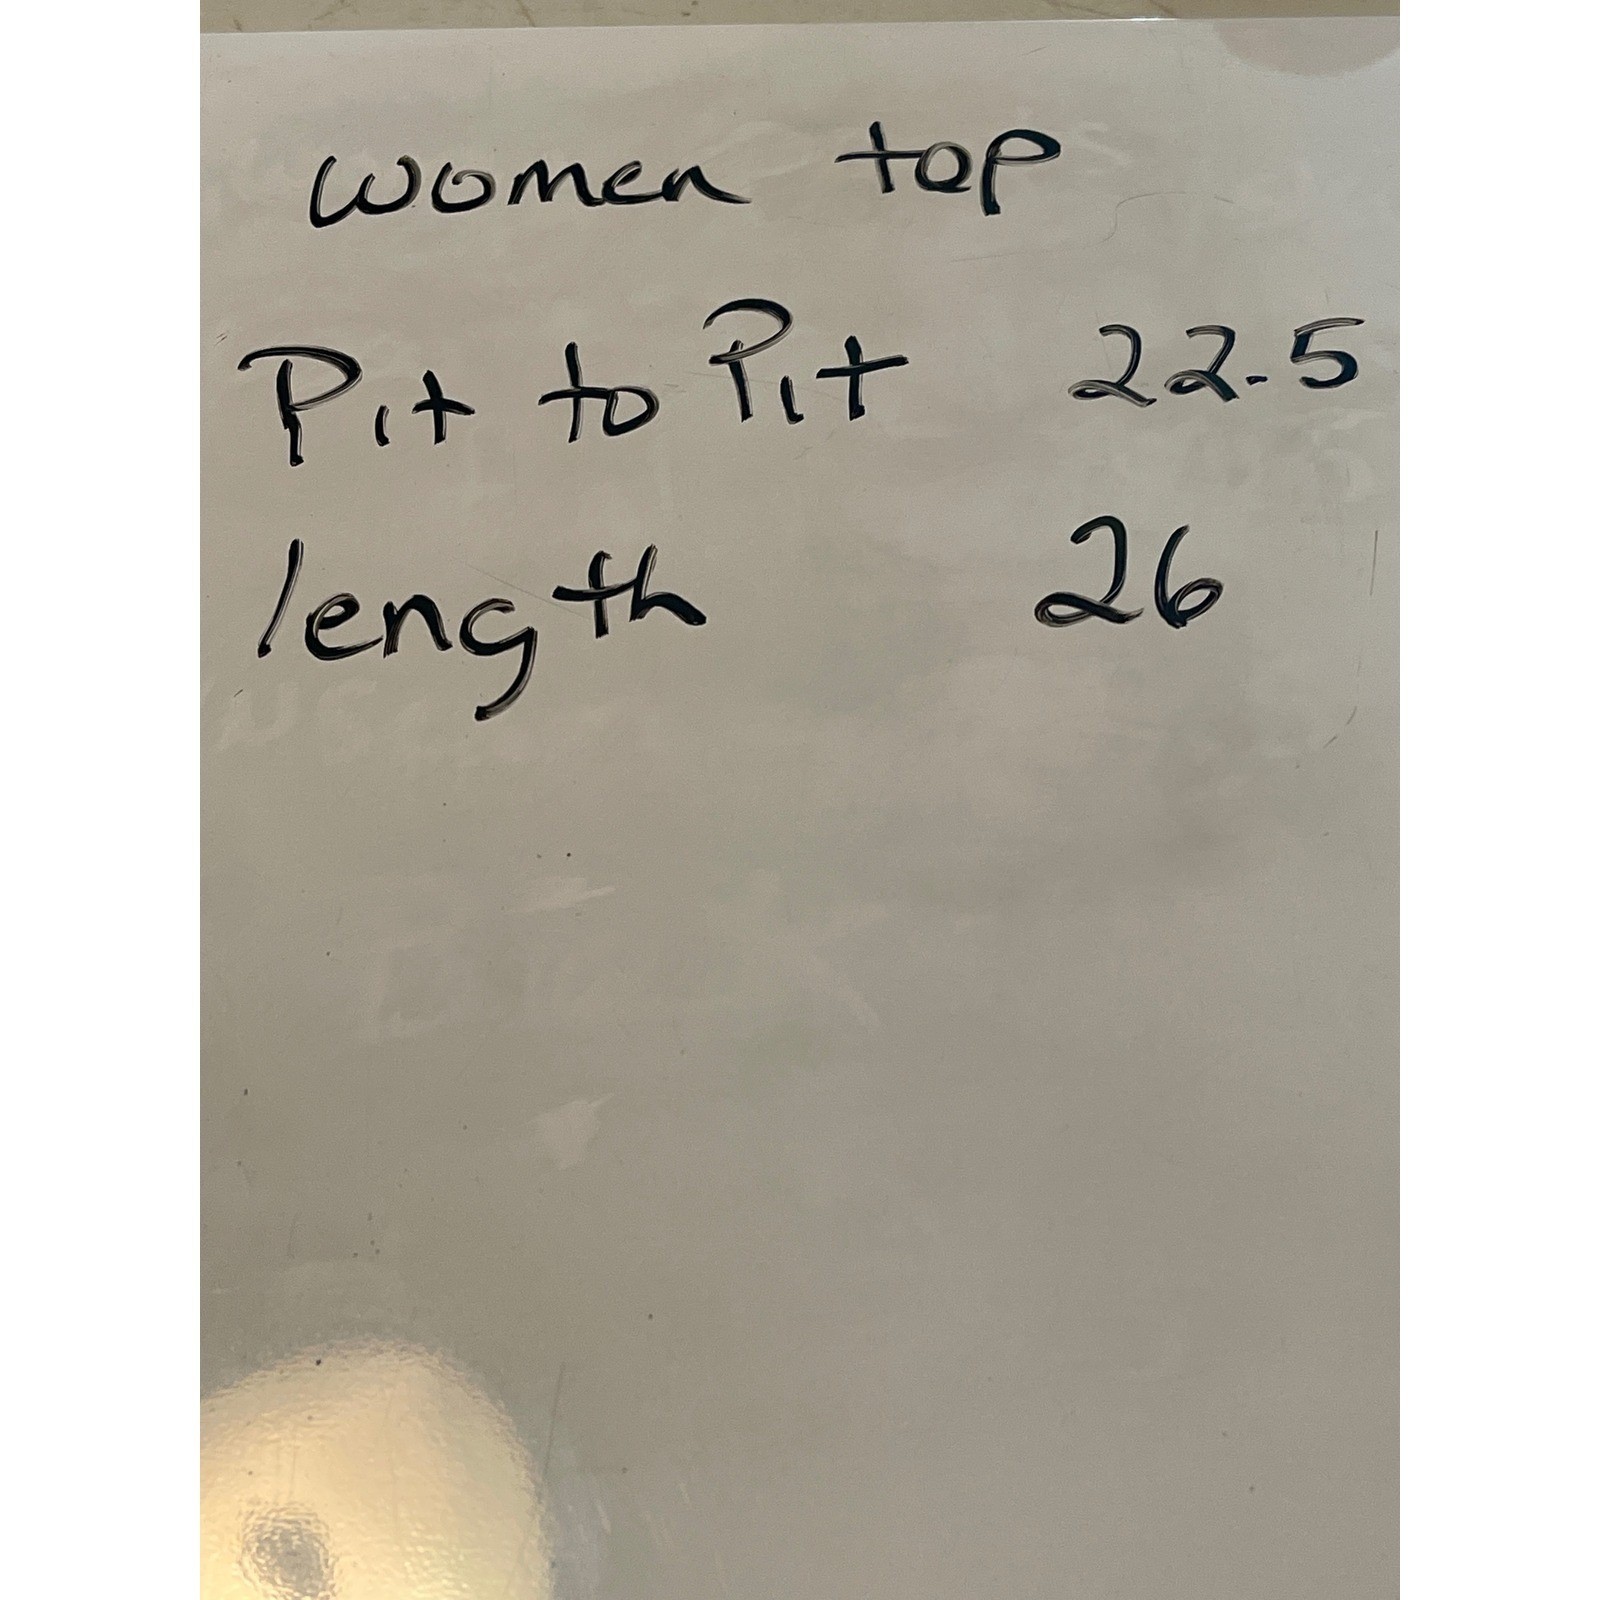 women top
Pit to Pit 22.5
length 26